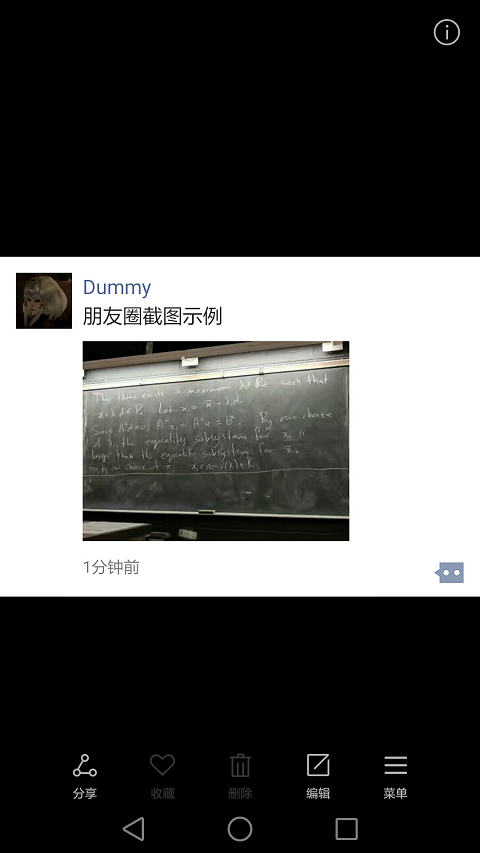 Dummy
朋友圈截图示例
Thus there exists a maximum λ₁∈R₊₀ such that
x̄+λ₁d∈P. Let x₁ = x̄ + λ₁d.
Since A⁼d=0, A⁼x₁ = A⁼x̄ = b⁼. By our choice
of λ₁, the equality subsystem for x₁ is
larger than the equality subsystem for x̄.
so by our choice of x̄, x₁∈conv(X)+K
1分钟前
分享
收藏
删除
编辑
菜单